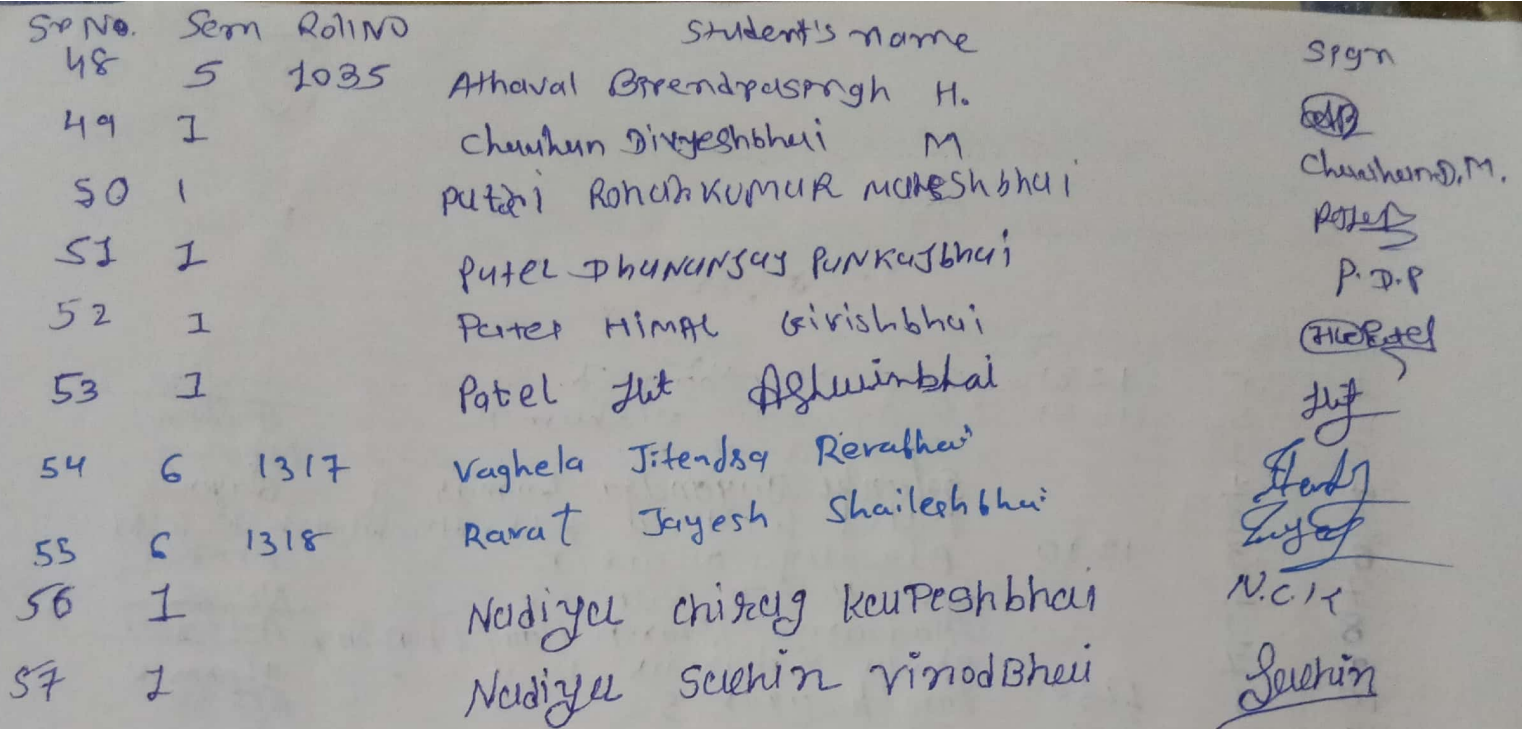 Sr No. Sem Roll NO Student's name Sign
48 5 1035 Athaval Birendrasingh H.
49 1 Chauhan Divyeshbhai M Chauhan D.M.
50 1 Rohan Kumar Maheshbhai Patel
51 1 Patel Dhananjay Pankajbhai P.D.P
52 1 Patel Himal Girishbhai
53 1 Patel Hit Ashwinbhai Hit
54 6 1317 Vaghela Jitendra Revabhai
55 6 1318 Ravat Jayesh Shaileshbhai
56 1 Nadiya Chirag Kalpeshbhai N.C.K
57 1 Nadiya Sachin VinodBhai Sachin